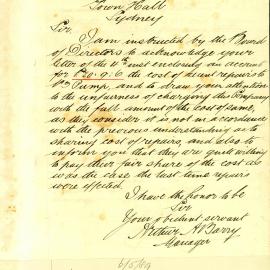 Town Hall
Sydney
Sir
I am instructed by the Board
of Directors to acknowledge your
letter of the inst enclosing an account
for £20.9.6 the cost of recent repairs to
Pump, and to draw your attention
to the unfairness of charging this Company
with the full amount of the cost of same,
as they consider it is not in accordance
with the previous understanding as to
sharing cost of repairs, and also to
inform you that they are quite willing
to pay their fair share of the cost as
was the case the last time repairs
were effected.
I have the honor to be
Sir
Your obedient servant
Arthur A Barry
Manager